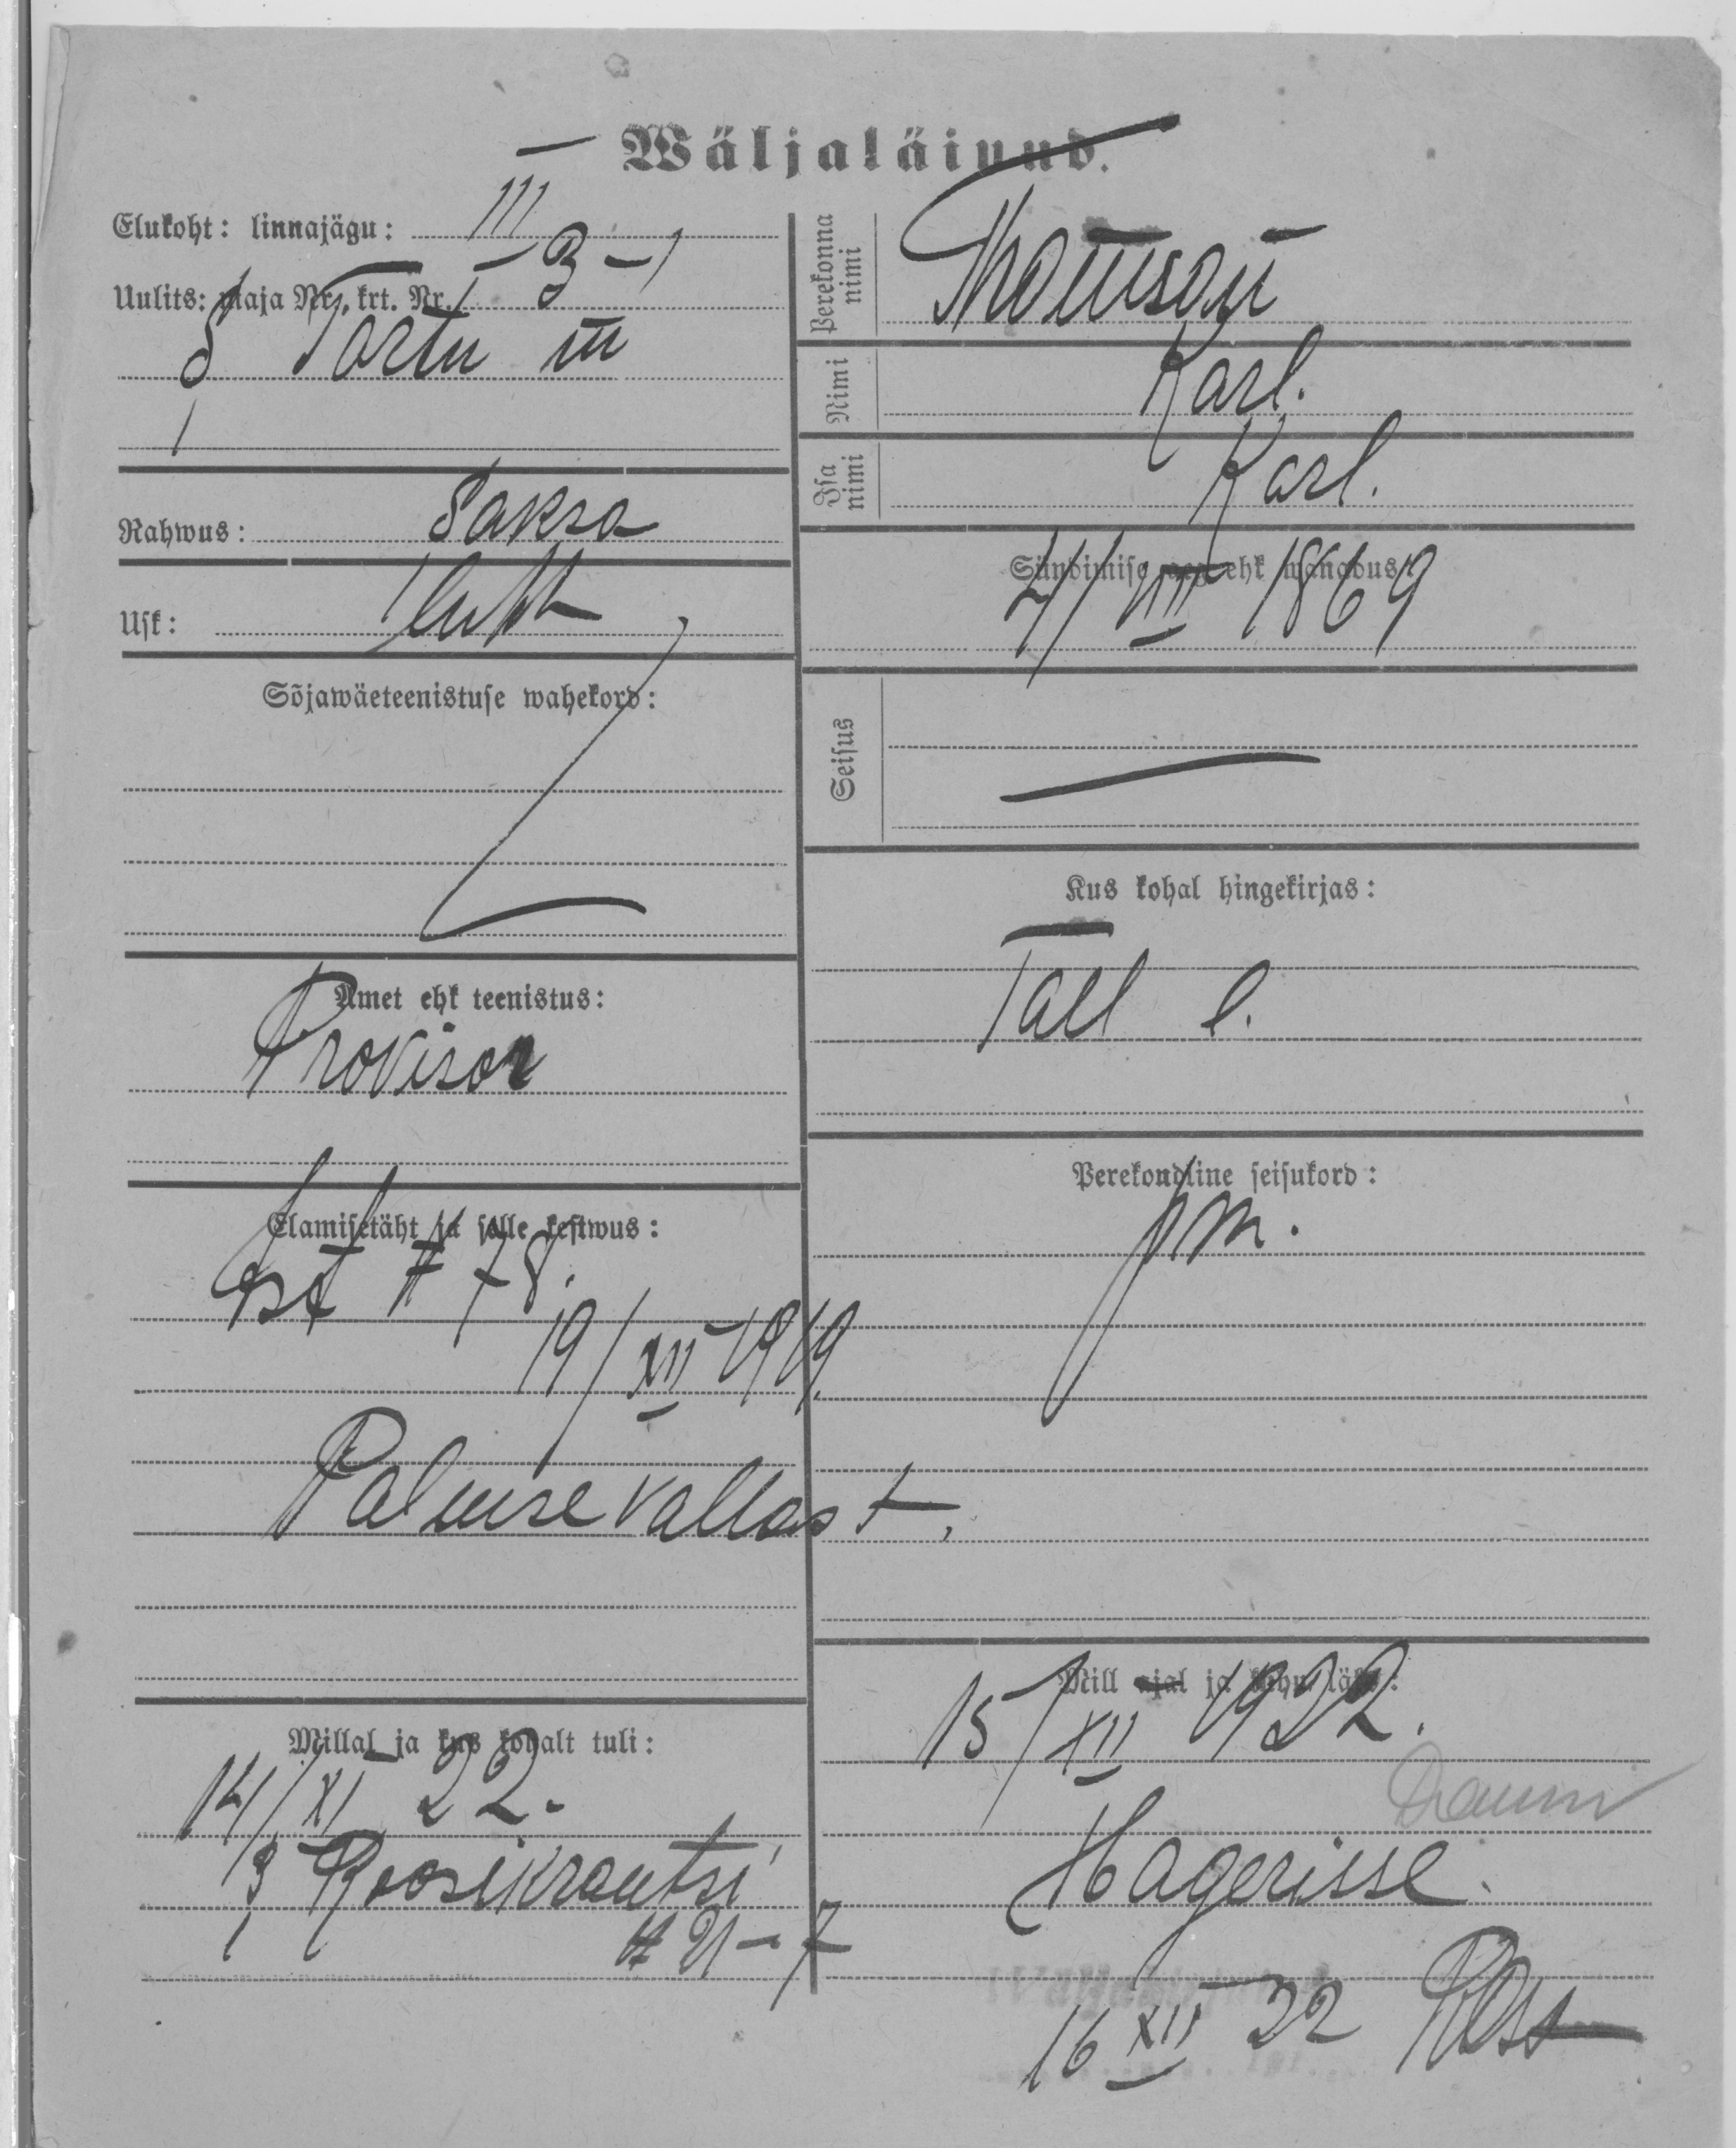 Wäljaläinud.
Elukoht: linnajägu: III
Uulits: maja Nr., krt. Nr. 3-1
S Tartu m
Rahwus: Saksa
Usk: luth
Sõjawäeteenistuse wahekord:
Amet ehk teenistus:
Provisor
Elamisetäht ja selle kestwus:
№ 78.
19/XII 1919.
Palmse vallast,
Millal ja kus kohalt tuli:
14/XI 22.
Roosikrantsi
№ 21-7
Perekonna nimi Thomson
Nimi Karl.
Isa nimi Karl.
Sündimise aeg ehk wanadus:
4/VIII 1869
Seisus
Kus kohal hingekirjas:
Tall l.
Perekondline seisukord:
Mill ajal ja kuhu läks:
15/XII 1922.
Hagerisse.
16 XII 22